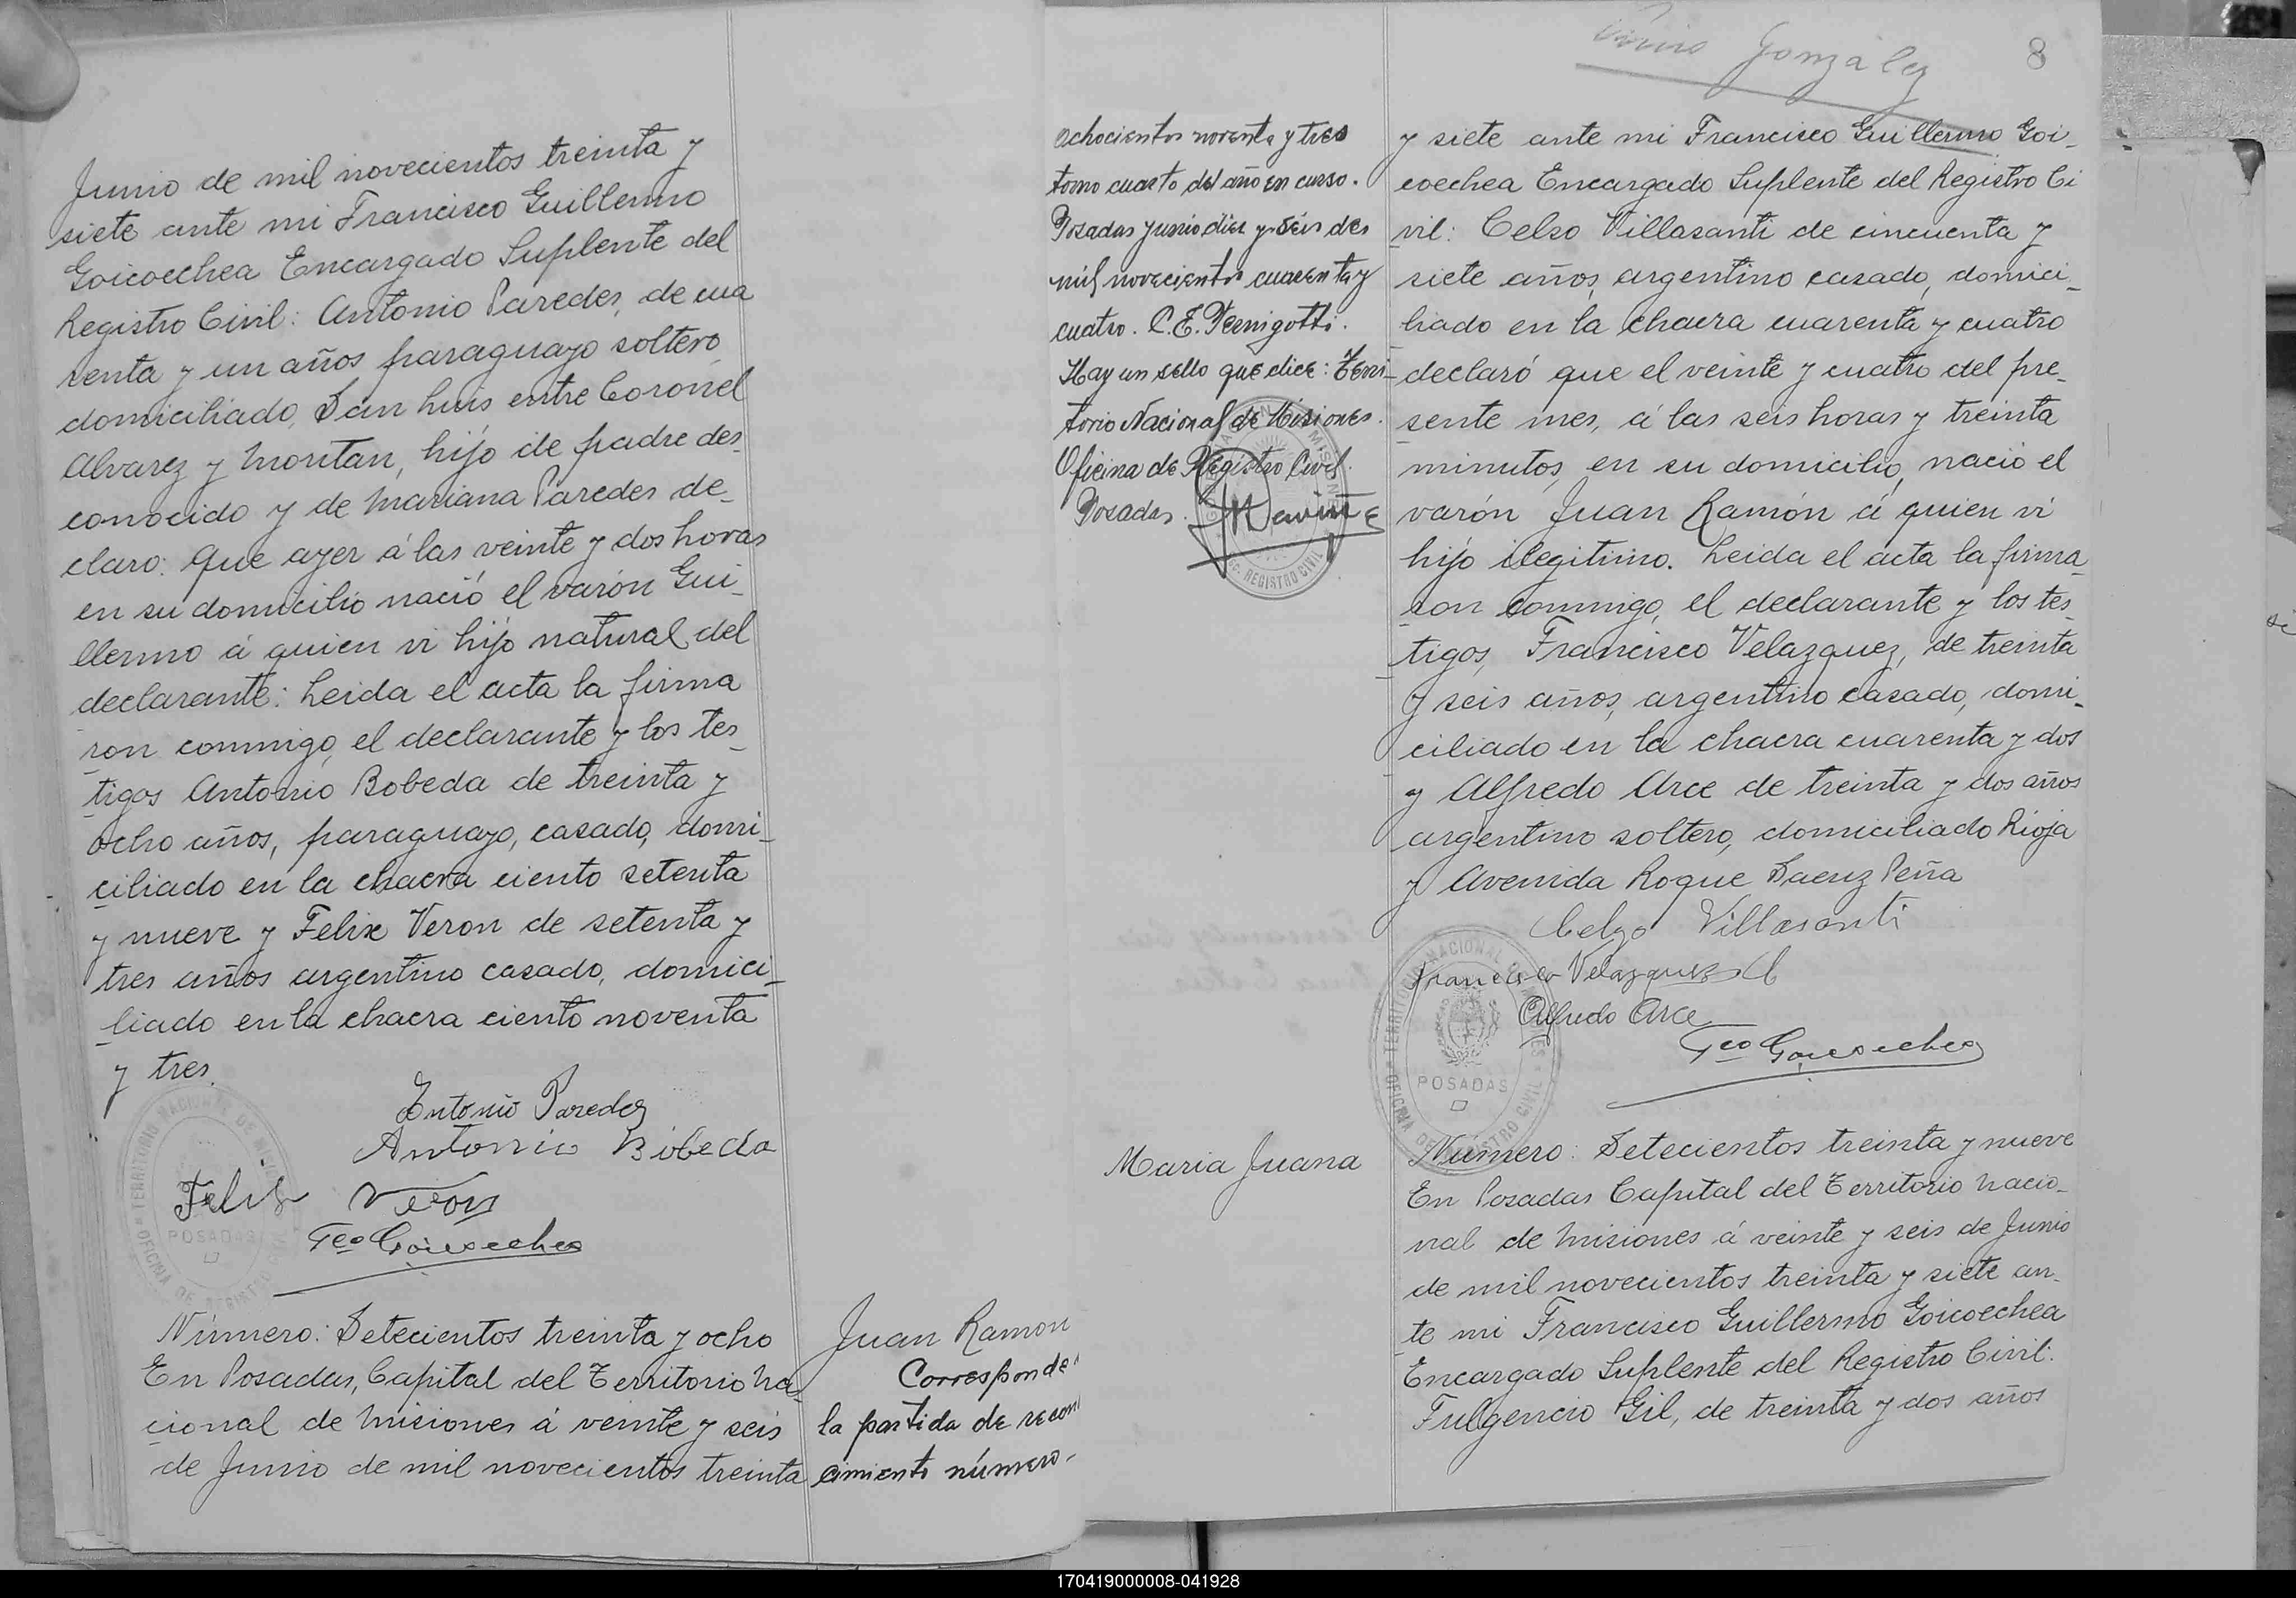 Junio de mil novecientos treinta y
siete ante mi Francisco Guillermo
Goicoechea Encargado Suplente del
Registro Civil: Antonio Paredes, de cua
renta y un años paraguayo soltero
domiciliado, San Luis entre Coronel
Alvarez y Montan, hijo de padre des_
conocido y de Mariana Paredes de_
claro: Que ayer á las veinte y dos horas
en su domicilio nació el varón Gui_
llermo á quien vi hijo natural del
declarante: Leida el acta la firma
ron conmigo, el declarante y los tes_
tigos Antonio Bobeda de treinta y
ocho años, paraguayo, casado, domi_
ciliado en la chacra ciento setenta
y nueve y Felix Veron de setenta y
tres años argentino casado, domici_
liado en la chacra ciento noventa
y tres.
Antonio Paredes
Antonio Bobeda
Felix Veron
Fco Goicoechea
OFICINA DE REGISTRO CIVIL TERRITORIO NACIONAL DE MISIONES
POSADAS
Número: Setecientos treinta y ocho
En Posadas, Capital del Territorio Na_
cional de Misiones á veinte y seis
de Junio de mil novecientos treinta
Juan Ramon
Corresponde
la partida de recon
cimiento número-
González
8
ochocientos noventa y tres
tomo cuarto del año en curso.
Posadas junio diez y seis de
mil novecientos cuarenta y
cuatro. C.E. Pernigotti.
Hay un sello que dice: Terri-
torio Nacional de Misiones.
Oficina de Registro Civil.
Posadas.
REGISTRO CIVIL
y siete ante mi Francisco Guillermo Goi_
coechea Encargado Suplente del Registro Ci
vil: Celso Villasanti de cincuenta y
siete años, argentino casado, domici_
liado en la chacra cuarenta y cuatro
declaró que el veinte y cuatro del pre_
sente mes, á las seis horas y treinta
minutos, en su domicilio, nació el
varón Juan Ramón á quien vi
hijo ilegitimo. Leida el acta la firma_
ron conmigo, el declarante y los tes_
tigos, Francisco Velazquez, de treinta
y seis años, argentino casado, domi_
ciliado en la chacra cuarenta y dos
y Alfredo Arce de treinta y dos años
argentino soltero, domiciliado Rioja
y Avenida Roque Saenz Peña
Celzo Villasanti
Francisco Velazquez
Alfredo Arce
Fco Goicoechea
OFICINA DE REGISTRO CIVIL TERRITORIO NACIONAL DE MISIONES
POSADAS
Maria Juana
Número: Setecientos treinta y nueve
En Posadas Capital del Territorio Nacio_
nal de Misiones á veinte y seis de Junio
de mil novecientos treinta y siete an_
te mi Francisco Guillermo Goicoechea
Encargado Suplente del Registro Civil:
Fulgencio Gil, de treinta y dos años
170419000008-041928